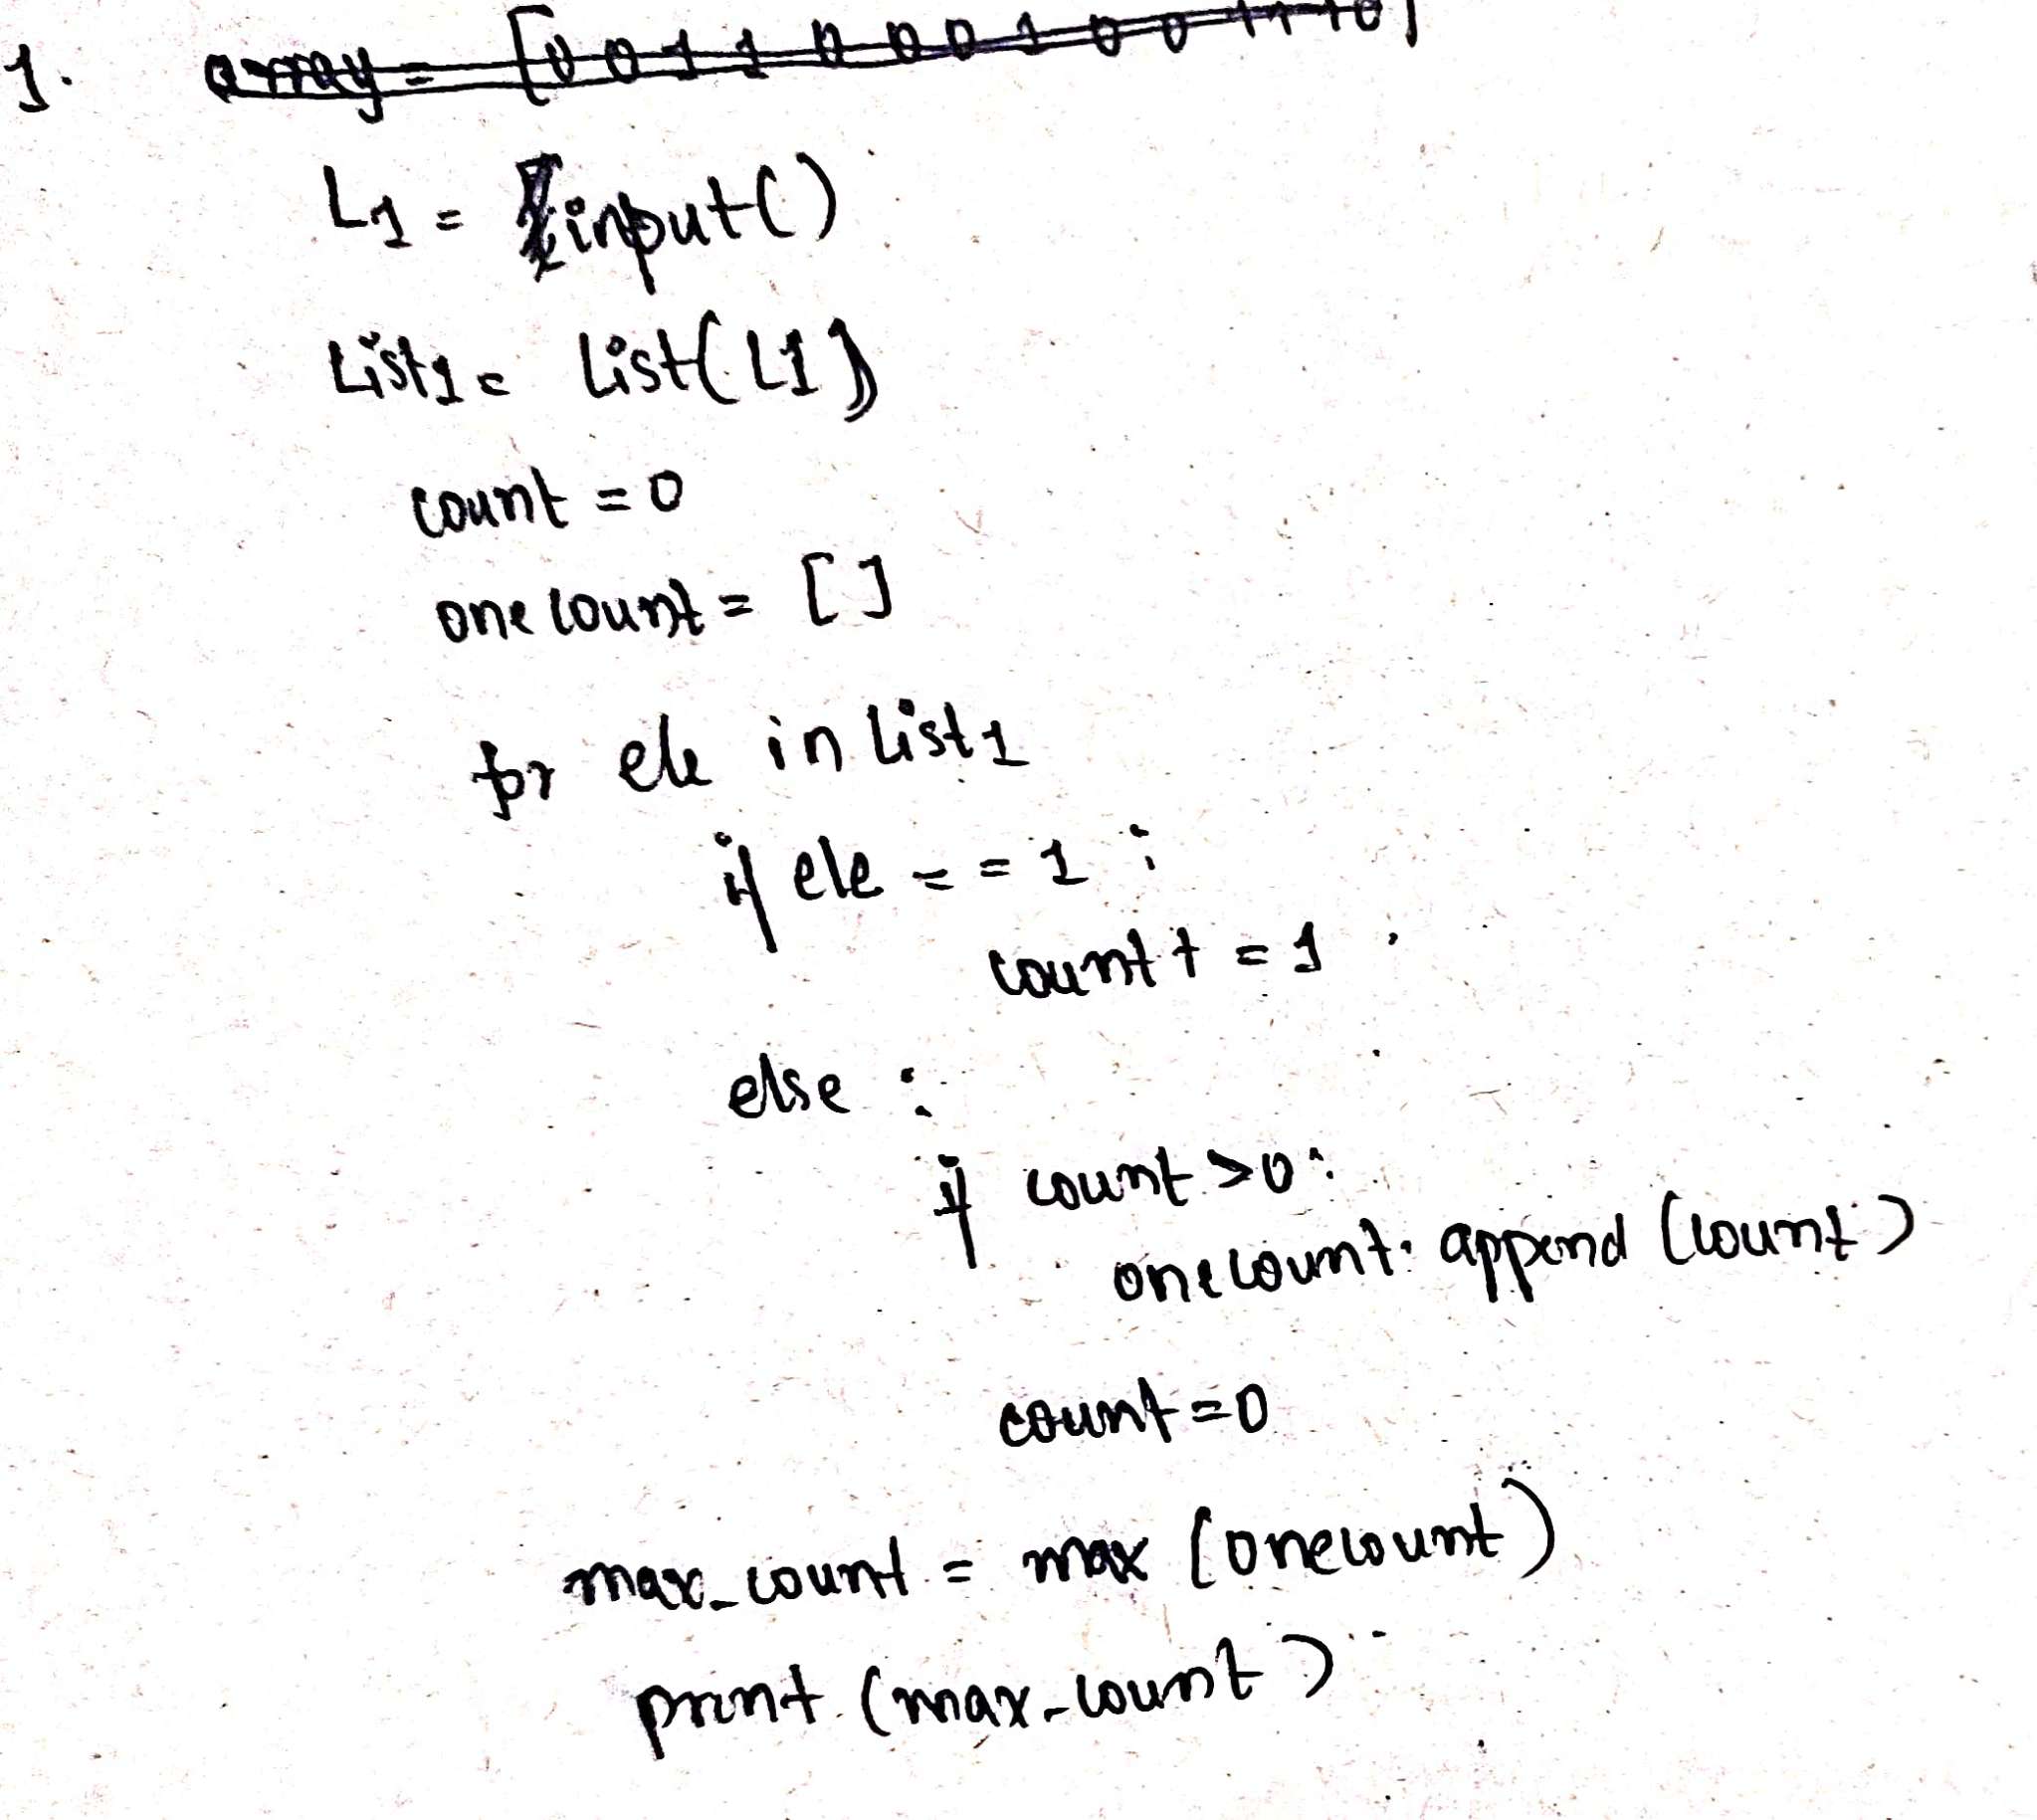 1. array = [0 0 1 1 0 0 0 1 0 0 1 1 1 0]
L1 = input()
List1 = List(L1)
count = 0
onecount = []
for ele in list1
if ele == 1 :
count + = 1
else :
if count > 0 :
onecount. append (count)
count = 0
max_count = max (onecount)
print (max_count)